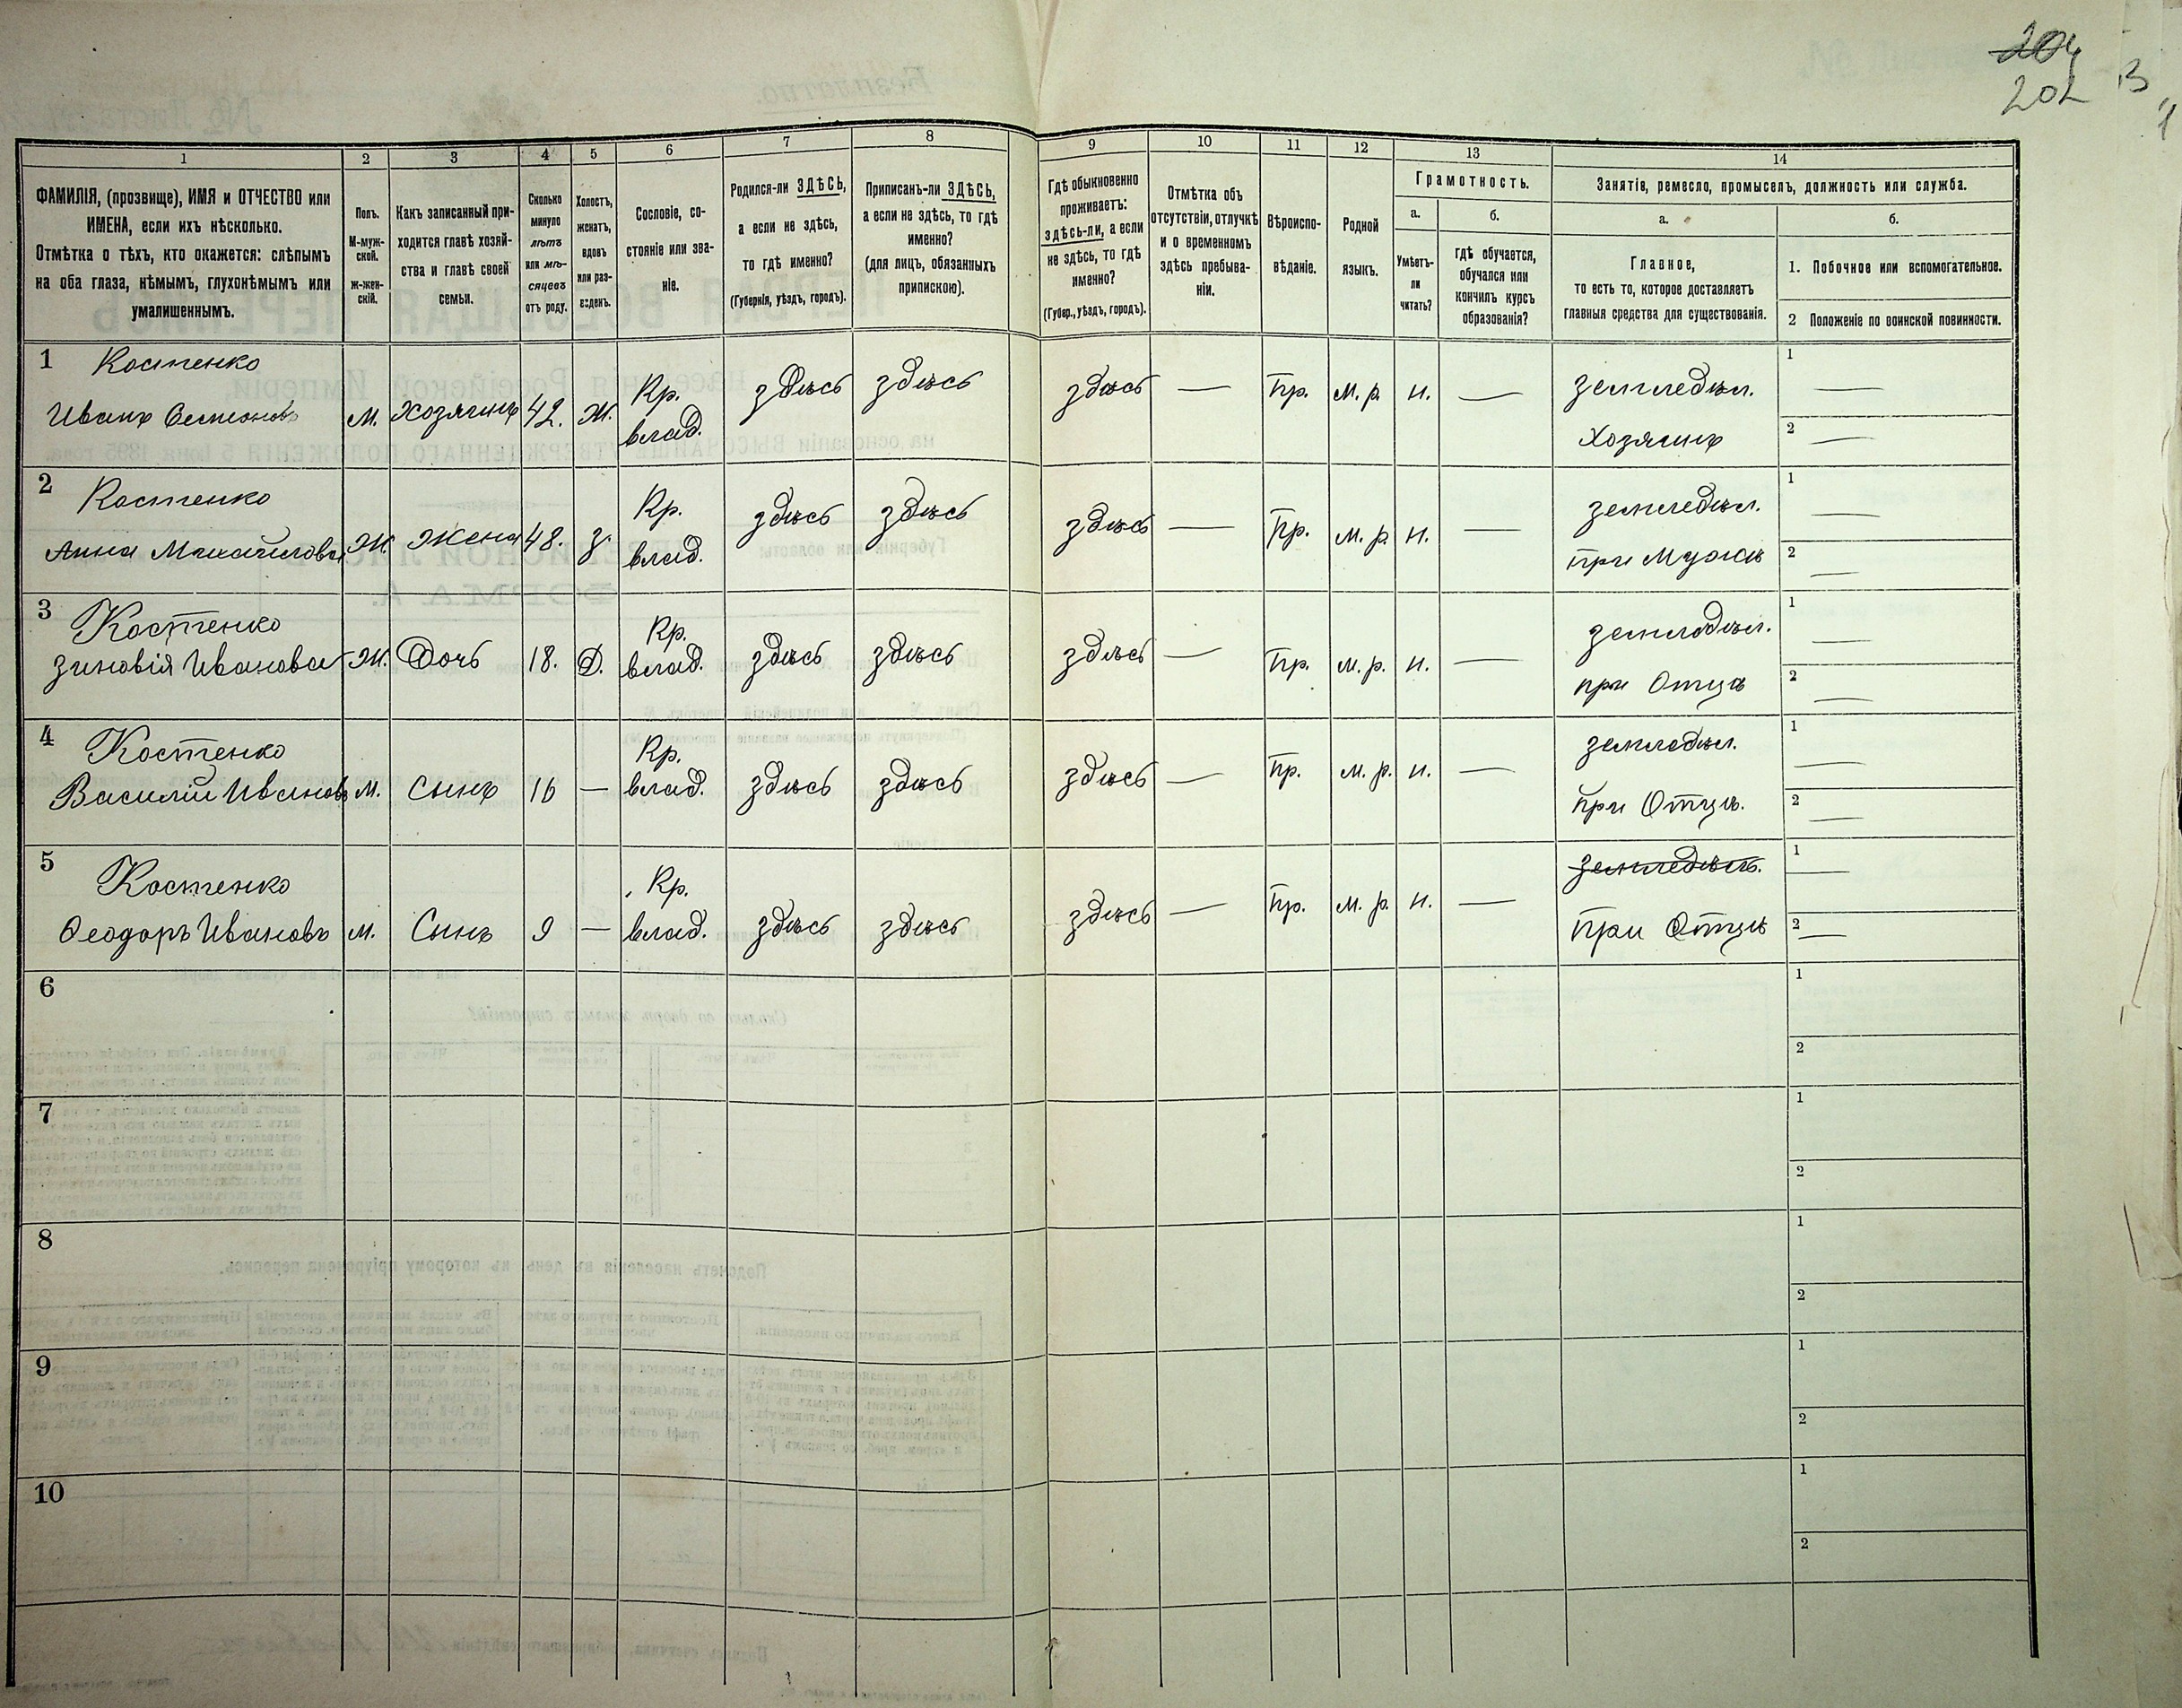 204
202
1 2 3 4 5 6 7 8 9 10 11 12 13 14
ФАМИЛІЯ, (прозвище), ИМЯ и ОТЧЕСТВО или
ИМЕНА, если ихъ нѣсколько.
Отмѣтка о тѣхъ, кто окажется: слѣпымъ
на оба глаза, нѣмымъ, глухонѣмымъ или
умалишеннымъ.
Полъ.
М-муж-
ской.
ж-жен-
скій.
Какъ записанный при-
ходится главѣ хозяй-
ства и главѣ своей
семьи.
Сколько
минуло
лѣтъ
или мѣ-
сяцевъ
отъ роду.
Холостъ,
женатъ,
вдовъ
или раз-
веденъ.
Сословіе, со-
стояніе или зва-
ніе.
Родился-ли ЗДѢСЬ,
а если не здѣсь,
то гдѣ именно?
(Губернія, уѣздъ, городъ).
Приписанъ-ли ЗДѢСЬ,
а если не здѣсь, то гдѣ
именно?
(для лицъ, обязанныхъ
припискою).
Гдѣ обыкновенно
проживаетъ:
здѣсь-ли, а если
не здѣсь, то гдѣ
именно?
(Губер., уѣздъ, городъ).
Отмѣтка объ
отсутствіи, отлучкѣ
и о временномъ
здѣсь пребыва-
ніи.
Вѣроиспо-
вѣданіе.
Родной
языкъ.
Грамотность.
а.
Умѣетъ-
ли
читать?
б.
гдѣ обучается,
обучался или
кончилъ курсъ
образованія?
Занятіе, ремесло, промыселъ, должность или служба.
а.
Главное,
то есть то, которое доставляетъ
главныя средства для существованія.
б.
1. Побочное или вспомогательное.
2 Положеніе по воинской повинности.
1 Костенко Кр. здѣсь здѣсь здѣсь — Пр. м. р. н. — земледѣл. 1 —
Иванъ Семеновъ м. хозяинъ 42. Ж. влад. хозяинъ 2 —
2 Костенко Кр. здѣсь здѣсь здѣсь — Пр. м. р. н. — земледѣл. 1 —
Анна Михайлова Ж. жена 48. З. влад. при Мужѣ 2 —
3 Костенко Кр. земледѣл. 1 —
Зиновія Иванова Ж. Дочь 18. Д. влад. здѣсь здѣсь здѣсь — Пр. м. р. н. — при Отцѣ 2 —
4 Костенко Кр. земледѣл. 1 —
Василій Ивановъ м. Сынъ 16 — влад. здѣсь здѣсь здѣсь — Пр. м. р. н. — при Отцѣ. 2 —
5 Костенко Кр. земледѣл. 1 —
Ѳеодоръ Ивановъ м. Сынъ 9 — влад. здѣсь здѣсь здѣсь — Пр. м. р. н. — при Отцѣ 2 —
6 1
2
7 1
2
8 1
2
9 1
2
10 1
2